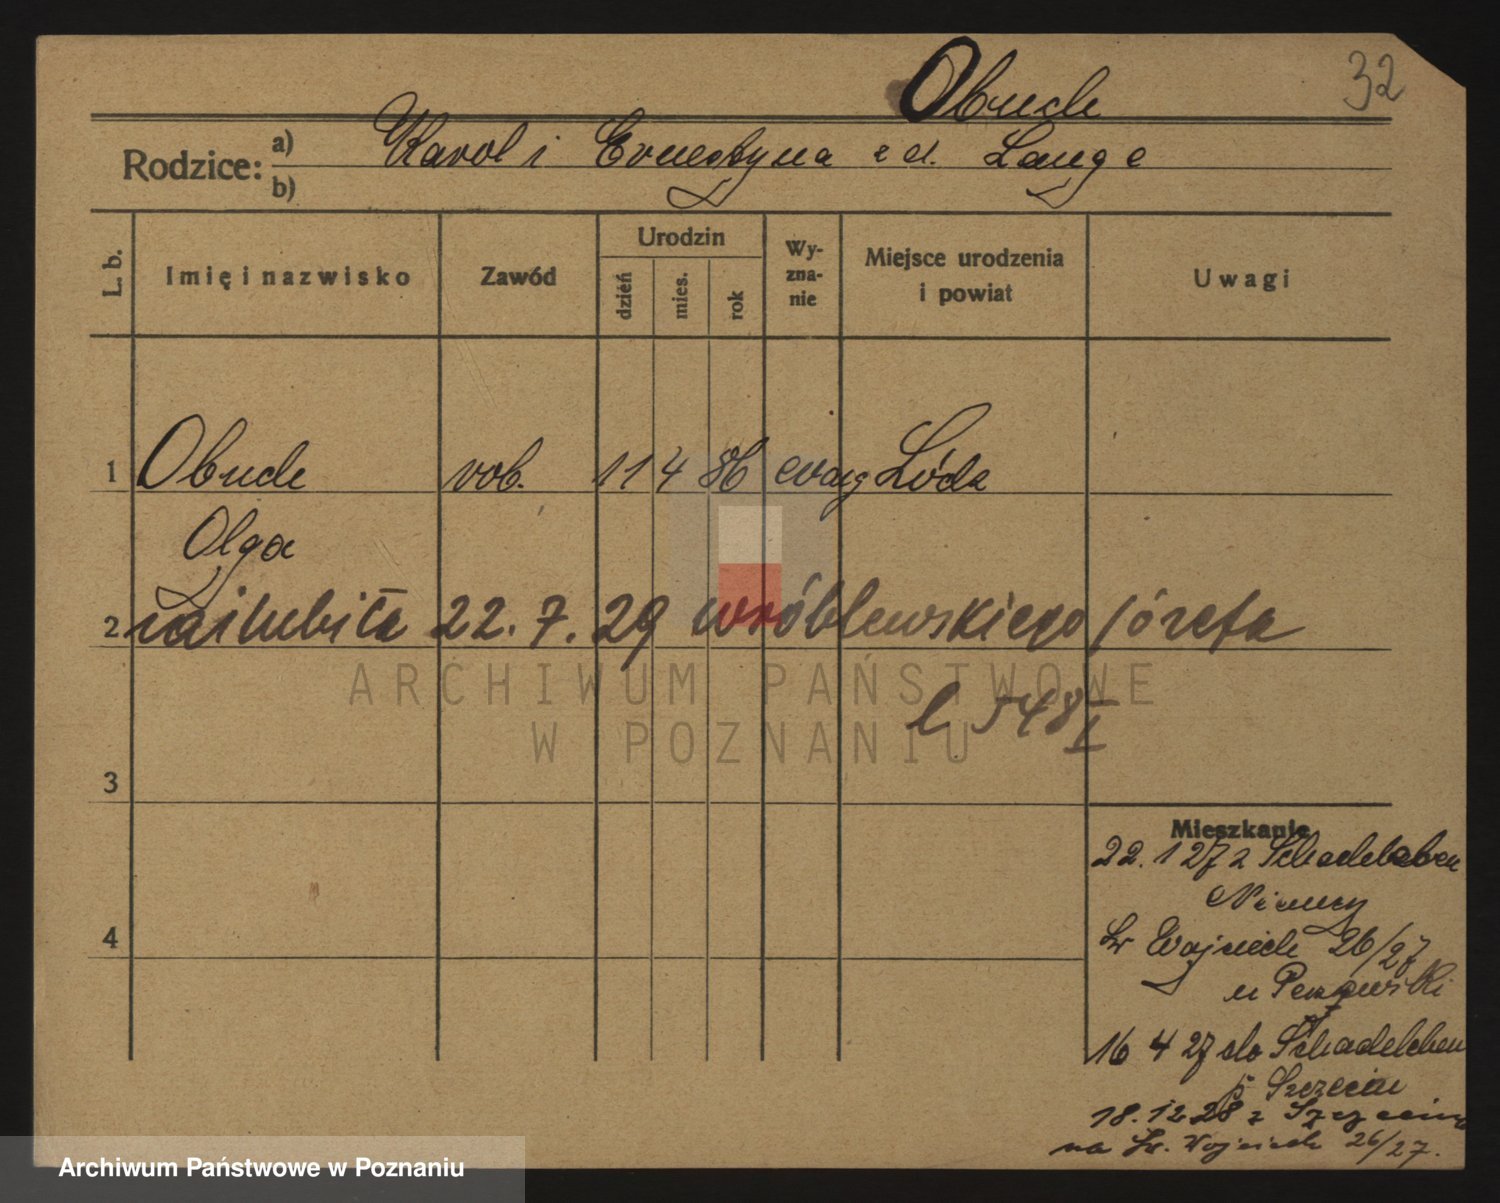 32
Obuch
Rodzice: a) Karol i Ernestyna z d. Lange
b)
L. b. Imię i nazwisko Zawód Urodzin dzień mies. rok Wy-zna-nie Miejsce urodzenia i powiat Uwagi
1 Obuch rob. 11 4 86 ewang Łódź
Olga
2 zaślubiła 22. 7. 29 Wróblewskiego Józefa
l 548 I
3
Mieszkanie
22. 1 27 z Schadeleben
Niemcy
4
Św Wojciech 26/27
u
16 4 27 do Schadeleben
p Szczecin
18. 12 28 z Szczecina
na Św. Wojciech 26/27.
ARCHIWUM PAŃSTWOWE
W POZNANIU
Archiwum Państwowe w Poznaniu